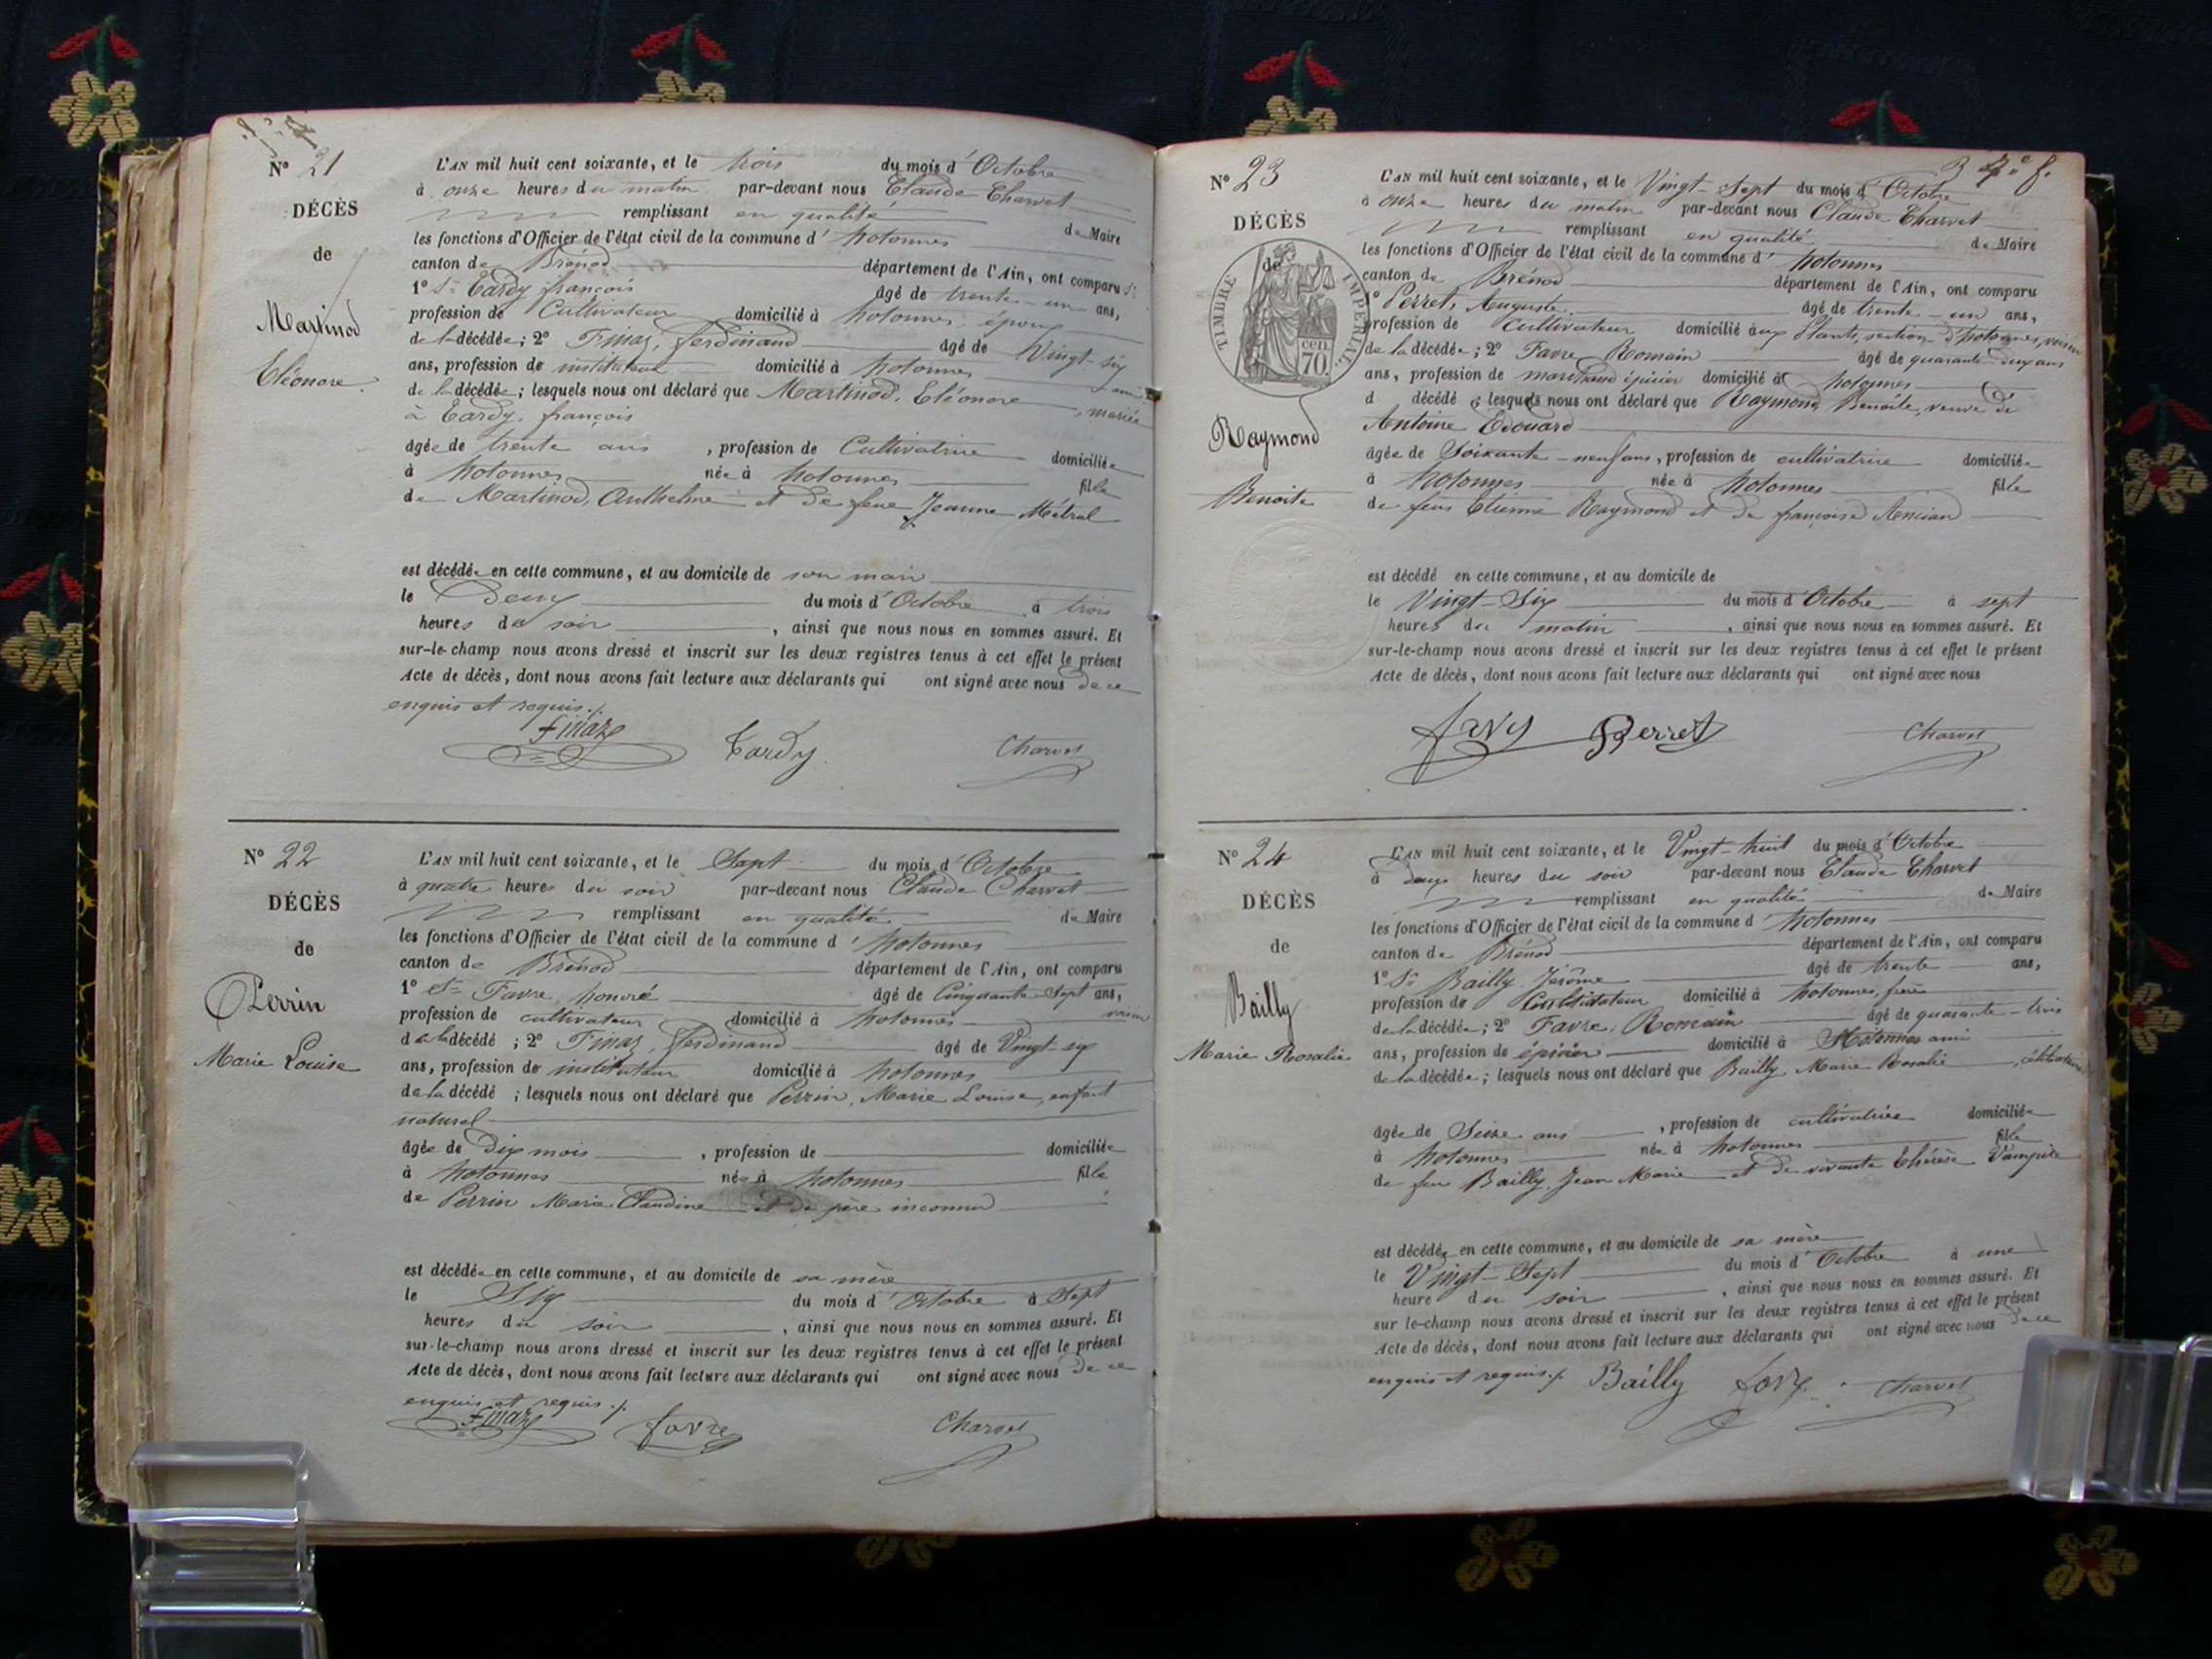 N° 21
DÉCÈS
de
Martinod
Eléonore.
L'AN mil huit cent soixante, et le trois du mois d'Octobre
à onze heures du matin par-devant nous Claude Charvet
remplissant en qualité de Maire
les fonctions d'Officier de l'état civil de la commune d'hotonnes
canton de Brénod département de l'Ain, ont comparu
1° Sr Tardy françois âgé de trente-un ans,
profession de Cultivateur domicilié à hotonnes, époux
de la décédée; 2° Finaz, ferdinand âgé de Vingt-six
ans, profession de instituteur domicilié à hotonnes ami
de la décédée; lesquels nous ont déclaré que Martinod, Eléonore, mariée
à Tardy, françois
âgée de trente ans, profession de Cultivatrice domiciliée
à hotonnes née à hotonnes fille
de Martinod, Anthelme et de feue Jeanne Métral
est décédée en cette commune, et au domicile de son mari
le Deux du mois d'Octobre à trois
heures du soir, ainsi que nous nous en sommes assuré. Et
sur-le-champ nous avons dressé et inscrit sur les deux registres tenus à cet effet le présent
Acte de décès, dont nous avons fait lecture aux déclarants qui ont signé avec nous de ce
enquis et requis./.
Finaz Tardy. Charvet
N° 22
DÉCÈS
de
Perrin
Marie Louise
L'AN mil huit cent soixante, et le Sept du mois d'Octobre
à quatre heures du soir par-devant nous Claude Charvet
remplissant en qualité de Maire
les fonctions d'Officier de l'état civil de la commune d'hotonnes
canton de Brénod département de l'Ain, ont comparu
1° Sr Favre, honoré âgé de Cinquante-Sept ans,
profession de cultivateur domicilié à hotonnes voisin
de la décédé; 2° Finaz, ferdinand âgé de Vingt-six
ans, profession de instituteur domicilié à hotonnes
de la décédé; lesquels nous ont déclaré que Perrin, Marie Louise, enfant
naturel
âgée de Dix mois, profession de domiciliée
à hotonnes née à hotonnes fille
de Perrin Marie Claudine et de père inconnu
est décédée en cette commune, et au domicile de sa mère
le Six du mois d'Octobre à Sept
heures du soir, ainsi que nous nous en sommes assuré. Et
sur-le-champ nous avons dressé et inscrit sur les deux registres tenus à cet effet le présent
Acte de décès, dont nous avons fait lecture aux déclarants qui ont signé avec nous de ce
enquis et requis./.
Finaz favre Charvet
N° 23
DÉCÈS
de
TIMBRE IMPERIAL
70 cen.
Raymond
Benoite
L'AN mil huit cent soixante, et le Vingt-Sept du mois d'Octobre
à onze heures du matin par-devant nous Claude Charvet
remplissant en qualité de Maire
les fonctions d'Officier de l'état civil de la commune d'hotonnes
canton de Brénod département de l'Ain, ont comparu
1° Perret, Auguste âgé de trente-un ans,
profession de cultivateur domicilié aux section d'hotonnes, voisin
de la décédée; 2° Favre Romain âgé de quarante-deux ans
ans, profession de marchand épicier domicilié à hotonnes
d décédé; lesquels nous ont déclaré que Raymond Benoite, veuve de
Antoine Edouard
âgée de Soixante-neuf ans, profession de cultivatrice domiciliée
à hotonnes née à hotonnes fille
de feus Etienne Raymond et de françoise Ancian
est décédé en cette commune, et au domicile de
le Vingt-Six du mois d'Octobre à sept
heures du matin, ainsi que nous nous en sommes assuré. Et
sur-le-champ nous avons dressé et inscrit sur les deux registres tenus à cet effet le présent
Acte de décès, dont nous avons fait lecture aux déclarants qui ont signé avec nous
Perret Charvet
N° 24
DÉCÈS
de
Bailly
Marie Rosalie
L'AN mil huit cent soixante, et le Vingt-huit du mois d'Octobre
à deux heures du soir par-devant nous Claude Charvet
remplissant en qualité de Maire
les fonctions d'Officier de l'état civil de la commune d'hotonnes
canton de Brénod département de l'Ain, ont comparu
1° Sr Bailly Jérôme âgé de trente ans,
profession de Cultivateur domicilié à hotonnes, frère
de la décédée; 2° Favre, Romain âgé de quarante-trois
ans, profession de épicier domicilié à Hotonnes ami
de la décédée; lesquels nous ont déclaré que Bailly Marie Rosalie, célibataire
âgée de Seize ans, profession de cultivatrice domiciliée
à hotonnes née à hotonnes fille
de feu Bailly, Jean Marie et de vivante Thérèse
est décédée en cette commune, et au domicile de sa mère
le Vingt-Sept du mois d'Octobre à une
heure du soir, ainsi que nous nous en sommes assuré. Et
sur le-champ nous avons dressé et inscrit sur les deux registres tenus à cet effet le présent
Acte de décès, dont nous avons fait lecture aux déclarants qui ont signé avec nous de ce
enquis et requis./. Bailly Charvet